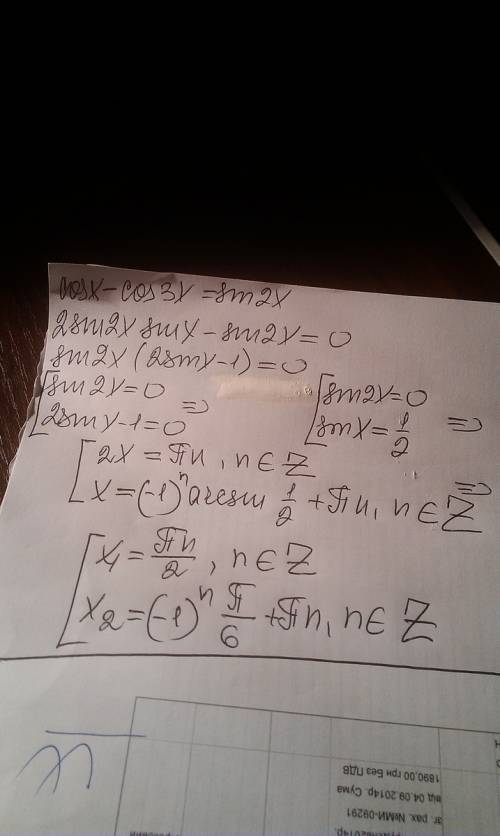 cosx - cos3x = sin2x
2sin2x sinx - sin2x = 0
sin2x (2sinx - 1) = 0
[ sin2x = 0
2sinx - 1 = 0 =>
[ sin2x = 0
sinx = 1/2 =>
[ 2x = πn, n ∈ Z
x = (-1)^n arcsin 1/2 + πn, n ∈ Z =>
[ x₁ = πn/2, n ∈ Z
x₂ = (-1)^n π/6 + πn, n ∈ Z
1890,00 грн Без ПДВ
від 04.09.2014р. Сума
зг. рах. №МИ-09291